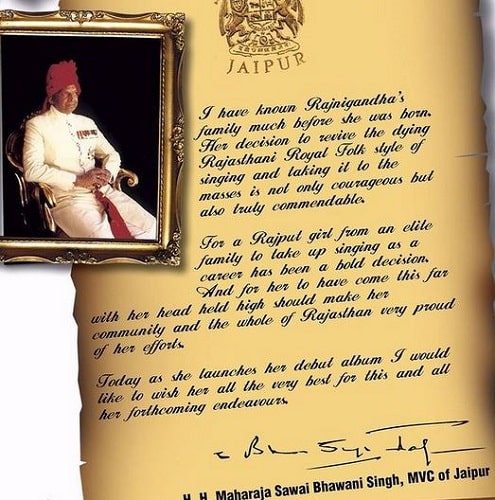 JAIPUR
I have known Rajnigandha's
family much before she was born.
Her decision to revive the dying
Rajasthani Royal Folk style of
singing and taking it to the
masses is not only courageous but
also truly commendable.
For a Rajput girl from an elite
family to take up singing as a
career has been a bold decision.
And for her to have come this far
with her head held high should make her
community and the whole of Rajasthan very proud
of her efforts.
Today as she launches her debut album I would
like to wish her all the very best for this and all
her forthcoming endeavours.
H. H. Maharaja Sawai Bhawani Singh, MVC of Jaipur